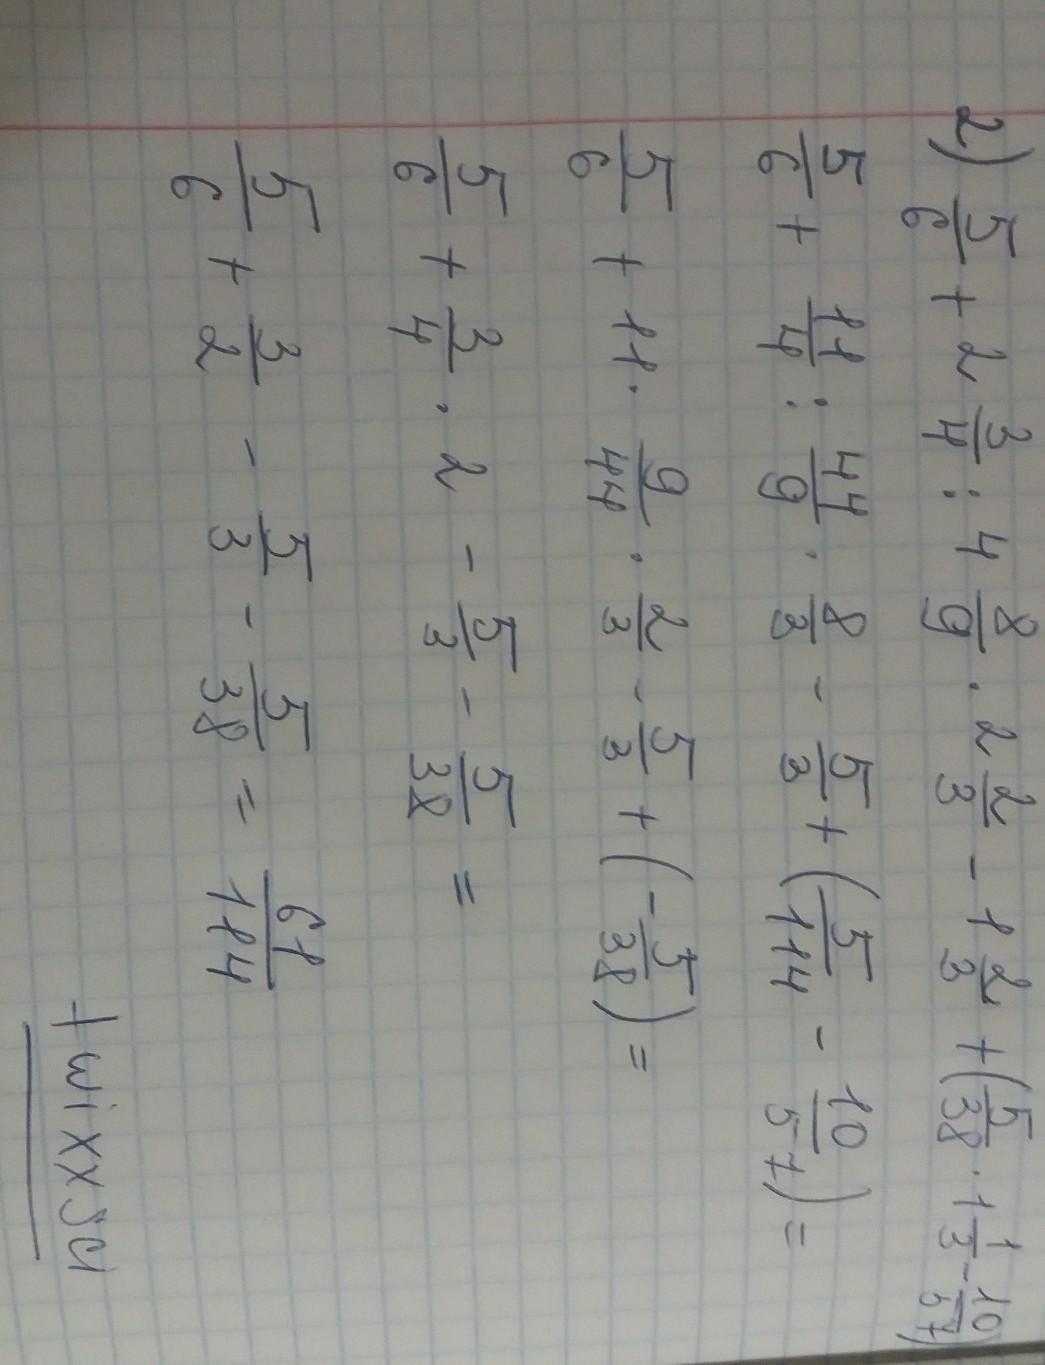 2) 5/6 + 2 3/4 : 4 8/9 · 2 2/3 - 1 2/3 + (5/38 · 1 1/3 - 10/57)
5/6 + 11/4 : 44/9 · 8/3 - 5/3 + (5/114 - 10/57) =
5/6 + 11 · 9/44 · 2/3 - 5/3 + (-5/38) =
5/6 + 3/4 · 2 - 5/3 - 5/38 =
5/6 + 3/2 - 5/3 - 5/38 = 61/114
twixxsu